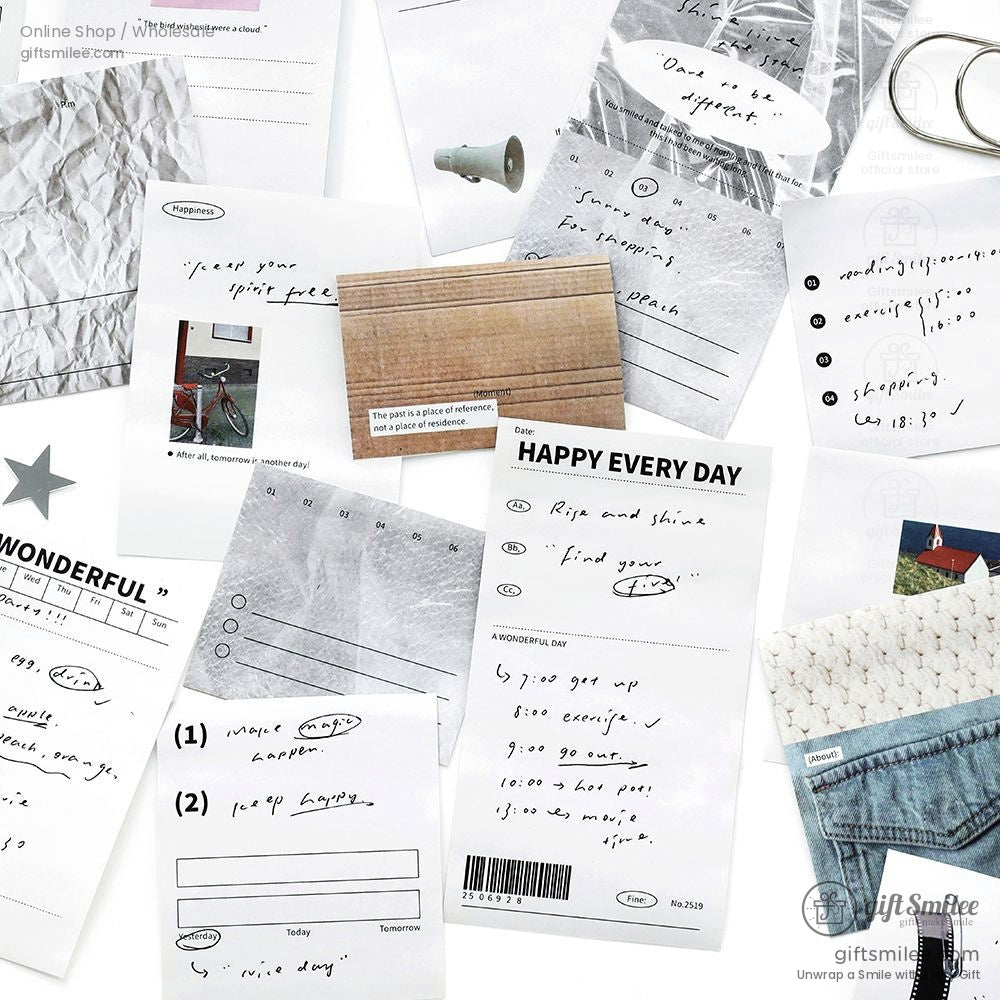 Online Shop / Wholesale
giftsmilee.com
"The bird wishes it were a cloud."
P.m
Shine like
the star.
"Dare to be
different."
You smiled and talked to me of nothing and I felt that for
this I had been waiting long.
If
01 02 03 04 05 06 07
"Sunny day"
For shopping.
peach
Giftsmilee
official store
gift Smilee
Giftsmilee
official store
01 reading (13:00~14:00
02 exercise 15:00
16:00
03
04 shopping.
18:30
Happiness
"keep your
spirit free.
After all, tomorrow is another day!
(Moment)
The past is a place of reference,
not a place of residence.
Date:
HAPPY EVERY DAY
Aa. Rise and shine
Bb. "find your
fire!"
Cc.
A WONDERFUL DAY
7:00 get up
8:00 exercise.
9:00 go out.
10:00 → hot pot!
13:00 movie
time.
2506928
Fine:
No.2519
01 02 03 04 05 06
WONDERFUL ”
Wed Thu Fri Sat Sun
Party!!!
egg, drink
apple.
peach, orange,
(1) make magic
happen.
(2) keep happy
Yesterday Today Tomorrow
"nice day"
(About):
gift Smilee
gift. make. Smile
giftsmilee.com
Unwrap a Smile with Gift